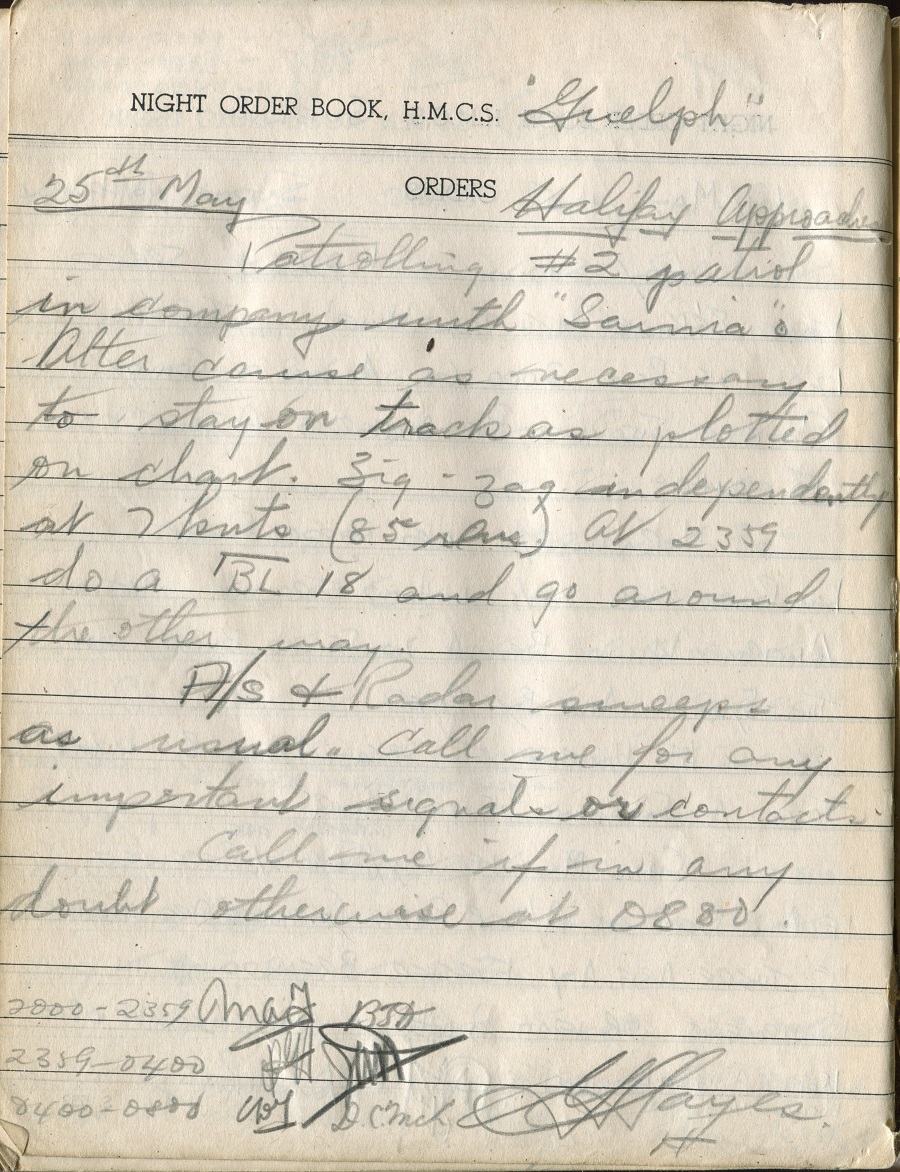 NIGHT ORDER BOOK, H.M.C.S. "Guelph"
25th May ORDERS Halifax Approaches
Patrolling #2 patrol
in company with "Sarnia".
Alter course as necessary
to stay on track as plotted
on chart. Zig-zag independently
at 7 knots (85 revs) At 2359
do a BL 18 and go around
the other way.
A/S & Radar sweeps
as usual. Call me for any
important signals or contacts.
Call me if in any
doubt otherwise at 0830.
2000-2359
2359-0400
0400-0800 D.C.McK. Hayes